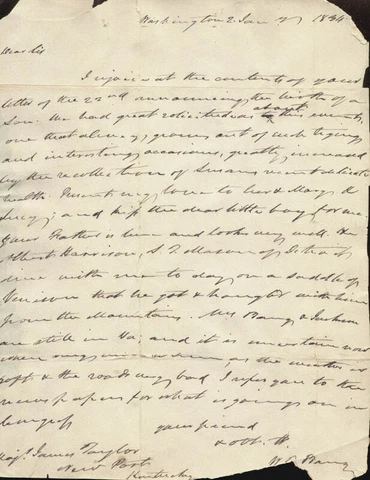 Washington 2 Jan 1834
Dear Sir
I rejoice at the contents of your
letter of the 22nd announcing the birth of a
son. We had great solicitude about this event,
one that always grows out of such trying
and interesting occasions, greatly increased
by the recollection of Susans recent delicate
health. Present my love to her & Mary &
Lucy; and kiss the dear little boy for me.
Your Father is here and looks very well. He
Albert Harrison, S. T. Mason of
dine with me to day, on a saddle of
Venison that he got & brought with him
from the Mountains. Mrs Barry & Jackson
are still in Va; and it is uncertain now
when as the weather is
soft & the roads very bad I refer you to the
news papers for what is going on in
Congress
your friend
& obt. St.
W. T. Barry
Majr. James Taylor
New Port
Kentucky